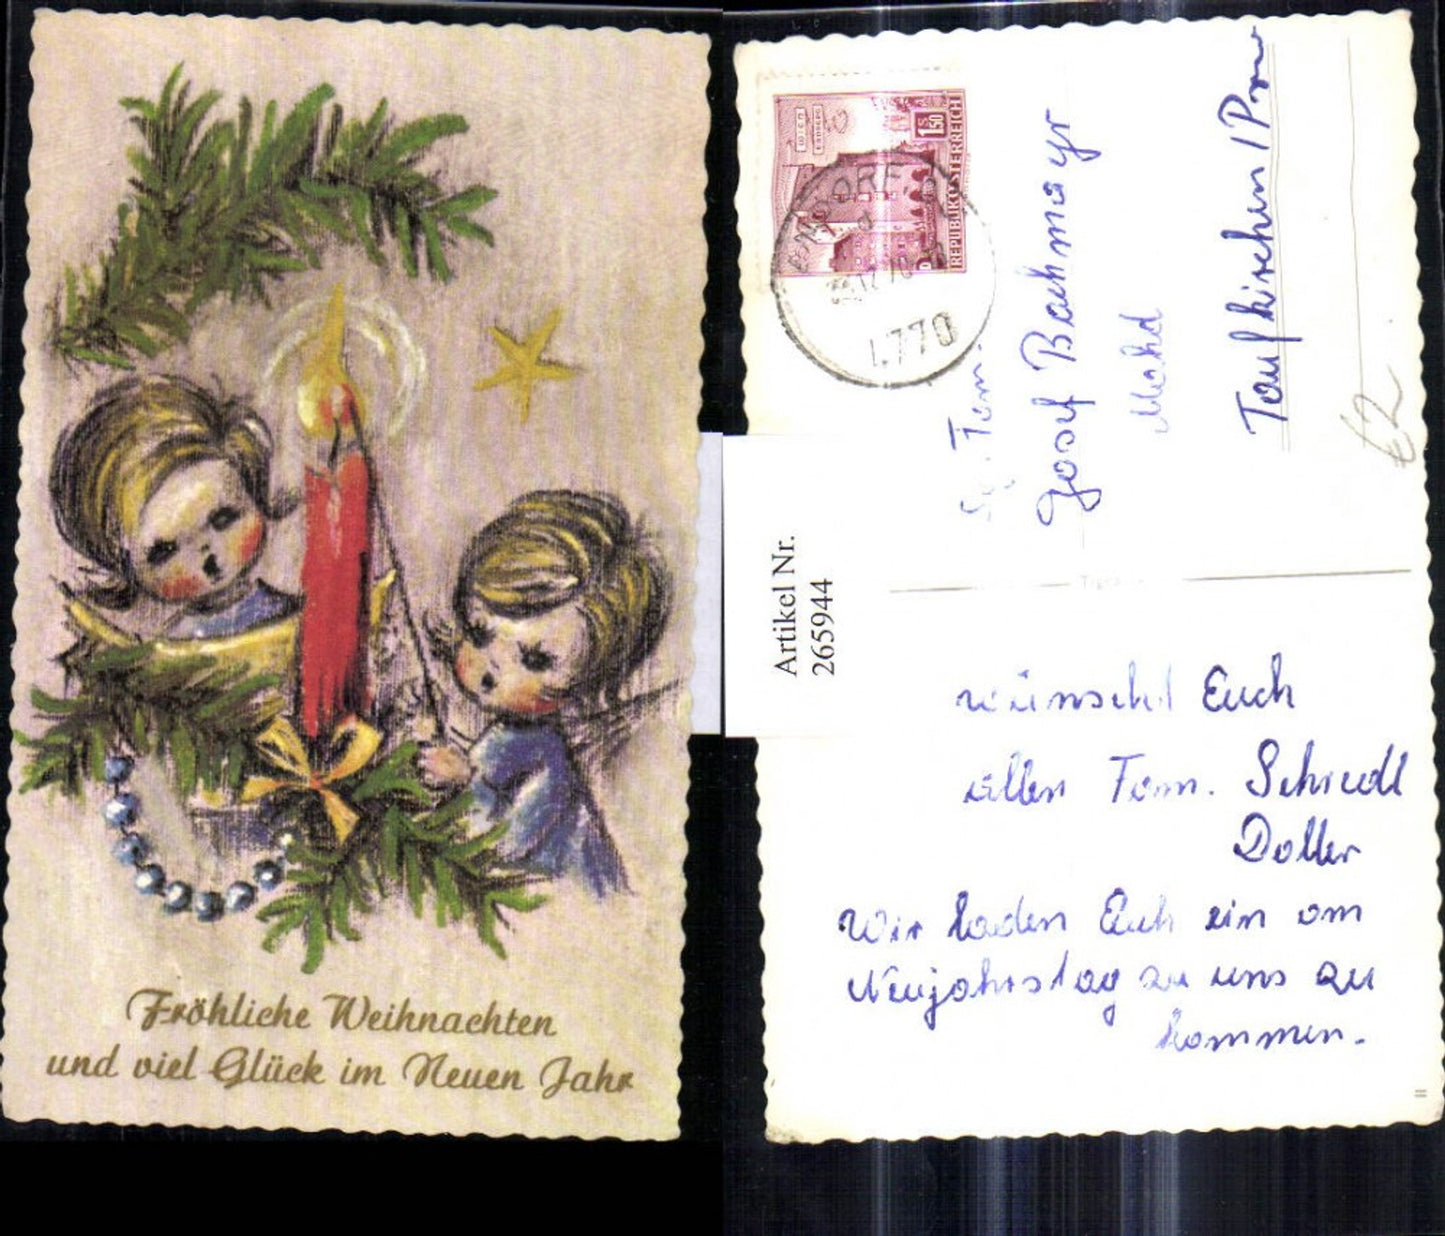 Fröhliche Weihnachten
und viel Glück im Neuen Jahr
1.50
S
REPUBLIK ÖSTERREICH
WIEN
ERDBERG
1.770
Fam.
Josef Bachmayr
Mahd
Taufkirchen / Pram
62
Artikel Nr.
265944
wünscht Euch
allen Fam. Schiedl
Doller
Wir laden Euch ein am
Neujahrstag zu uns zu
kommen.